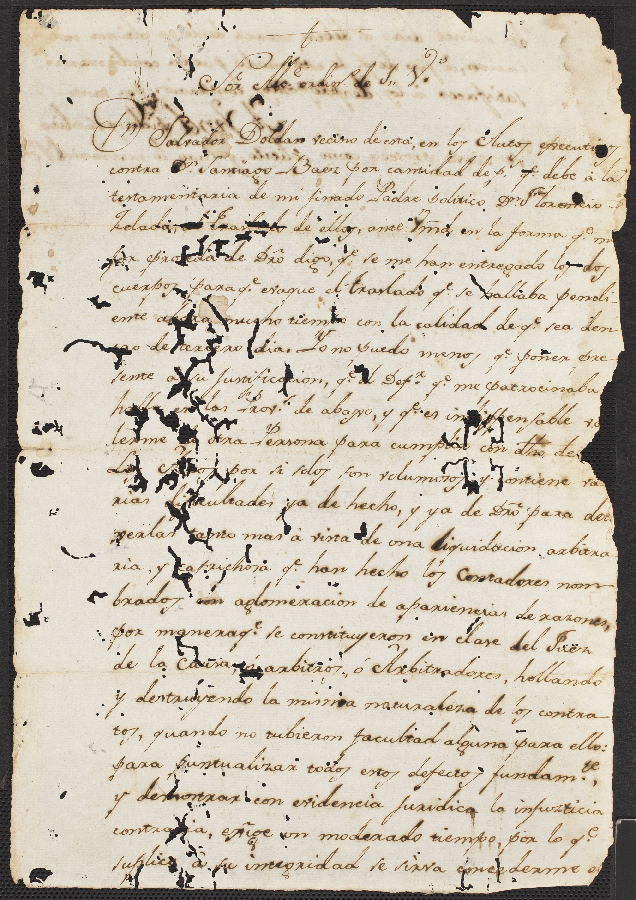 Sor Alce ordino de 1r Vo
Dn Salvador Doldan vecino de esta, en los Autos executivos
contra Dn Santiago Baez por cantidad de ps qe debe à la
testamentaria de mi finado Padre politico Dn Florencio
Zelada, traslado de ellos, ante Vmd, en la forma qe
por dro digo, qe se me han entregado los dos
cuerpos paraqe evaque el traslado qe se hallaba pendi-
ente mucho tiempo con la calidad de qe sea den-
tro de tercero dia. Yo no puedo menos qe poner pre-
sente a su justificacion, qe el Dofr qe me patrocinaba
halla en las Provs de abajo, y qe es indispensable va
lerme otra Persona para cumplir con dho de
Los Autos por si solos son volumosos, y contiene va
rias dificultades ya de hecho, y ya de Dro para
verlas tanto mas à vista de una liquidacion arbitra
ria, y caprichosa qe han hecho los Contadores nom-
brados con aglomeracion de apariencias de razones,
por maneraqe se constituyeron en clase del Juez
de la Causa, ò arbitros, ò Arbitradores, hollando
y destruyendo la misma naturaleza de los contra-
tos, quando no tubieron facultad alguna para ello:
para puntualizar todos estos defectos fundamte,
y demostrar con evidencia juridica la injusticia
contraria, exige un moderado tiempo, por lo qe
suplico à su integridad se sirva concederme